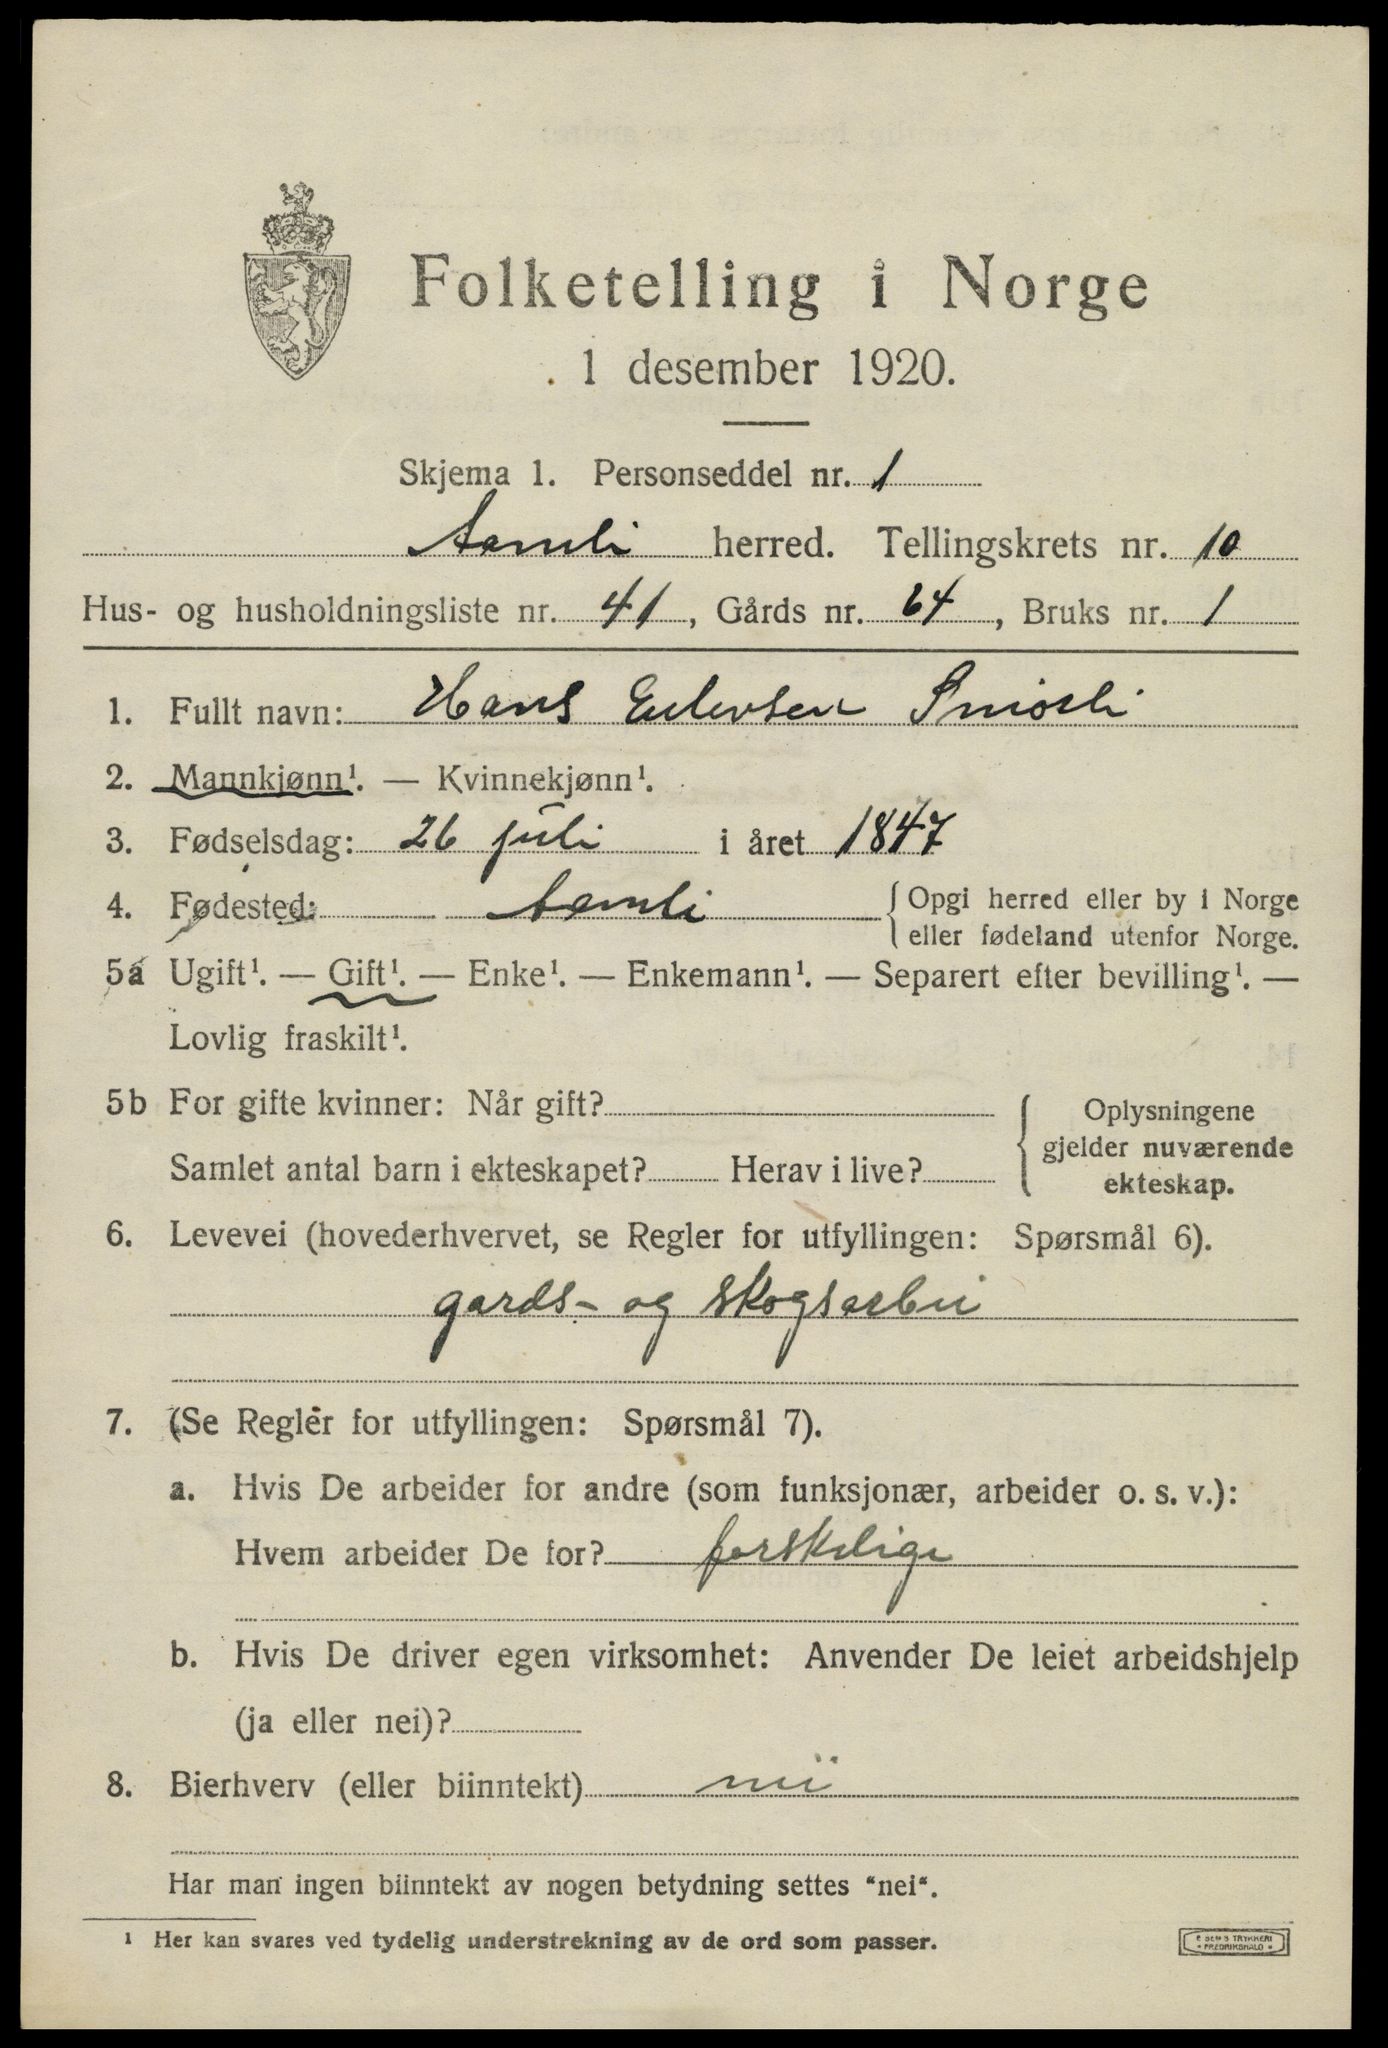 Folketelling i Norge
1 desember 1920.
Skjema 1. Personseddel nr. 1
Aamli herred. Tellingskrets nr. 10
Hus- og husholdningsliste nr. 41, Gårds nr. 64, Bruks nr. 1
1. Fullt navn: Hans Eilevsen Smiosli
2. Mannkjønn¹. — Kvinnekjønn¹.
3. Fødselsdag: 26 juli i året 1847
4. Fødested: Aamli {Opgi herred eller by i Norge
eller fødeland utenfor Norge.
5a Ugift¹. — Gift¹. — Enke¹. — Enkemann¹. — Separert efter bevilling¹. —
Lovlig fraskilt¹.
5b For gifte kvinner: Når gift?
Samlet antal barn i ekteskapet? Herav i live?
Oplysningene
gjelder nuværende
ekteskap.
6. Levevei (hovederhvervet, se Regler for utfyllingen: Spørsmål 6).
gards- og skogsarbei
7. (Se Regler for utfyllingen: Spørsmål 7).
a. Hvis De arbeider for andre (som funksjonær, arbeider o. s. v.):
Hvem arbeider De for? forskelige
b. Hvis De driver egen virksomhet: Anvender De leiet arbeidshjelp
(ja eller nei)?
8. Bierhverv (eller biinntekt) nei
Har man ingen biinntekt av nogen betydning settes "nei".
¹ Her kan svares ved tydelig understrekning av de ord som passer.
E SEM'S TRYKKERI
* FREDRIKSHALD *